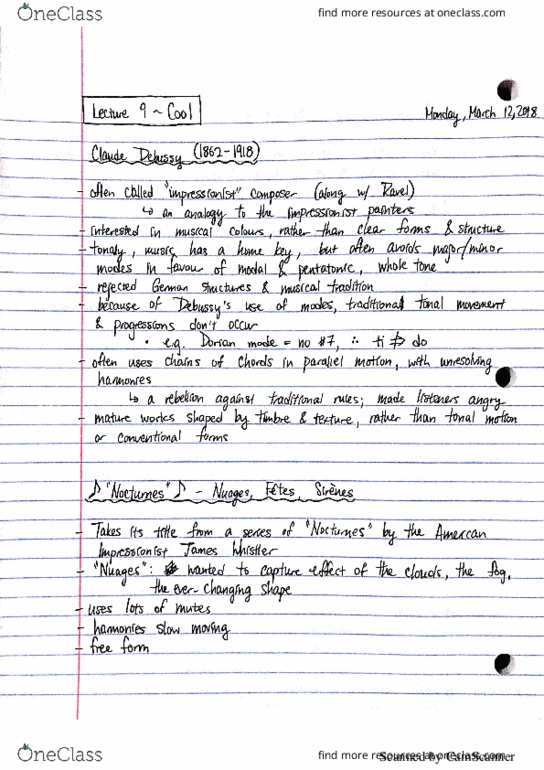 OneClass
find more resources at oneclass.com
Lecture 9 ~ Cool
Monday, March 12, 2018
Claude Debussy (1862-1918)
- often called "impressionist" composer (along w/ Ravel)
↳ an analogy to the impressionist painters
- interested in musical colours, rather than clear forms & structure
- tonaly, music has a home key, but often avoids major/minor
modes in favour of modal & pentatonic, whole tone
- rejected German structures & musical tradition
- because of Debussy's use of modes, traditional tonal movement
& progressions don't occur
• e.g. Dorian mode = no #7, ∴ ti ⇏ do
- often uses chains of chords in parallel motion, with unresolving
harmonies
↳ a rebellion against traditional rules; made listeners angry
- mature works shaped by timbre & texture, rather than tonal motion
or conventional forms
♪ "Nocturnes" ♪ - Nuages, Fêtes, Sirènes
- Takes its title from a series of "Nocturnes" by the American
Impressionist James Whistler
- "Nuages": wanted to capture effect of the clouds, the fog,
the ever-changing shape
- uses lots of mutes
- harmonies slow moving
- free form
OneClass
find more resources at oneclass.com
Scanned by CamScanner